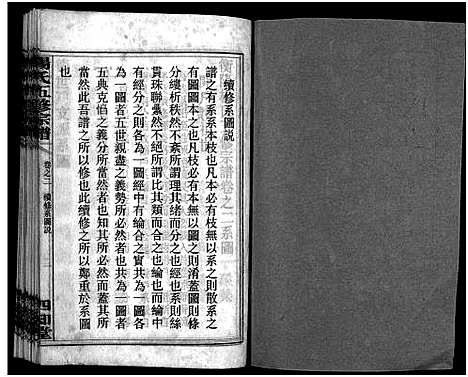 續修系圖說
譜之有系系本枝也凡本必有枝無以系之則散系之
有圖圖本之也凡枝必有本無以圖之則淆蓋圖則條
分縷析秩然不紊所謂理其緒而分之也經也系則絲
貫珠聯纍然不絕所謂比其類而合之也綸也而綸中
有經分之則各為一圖經中有綸合之實共為一圖各
為一圖者五世親盡之義勢所必然者也共為一圖者
五典克惇之義分所當然者也知其所必然而蓋其所
當然此吾譜之所以修也此續修之所以鄭重於系圖
也
氏五修宗譜
卷之二
續修系圖說
四知堂
宗譜卷之二系圖